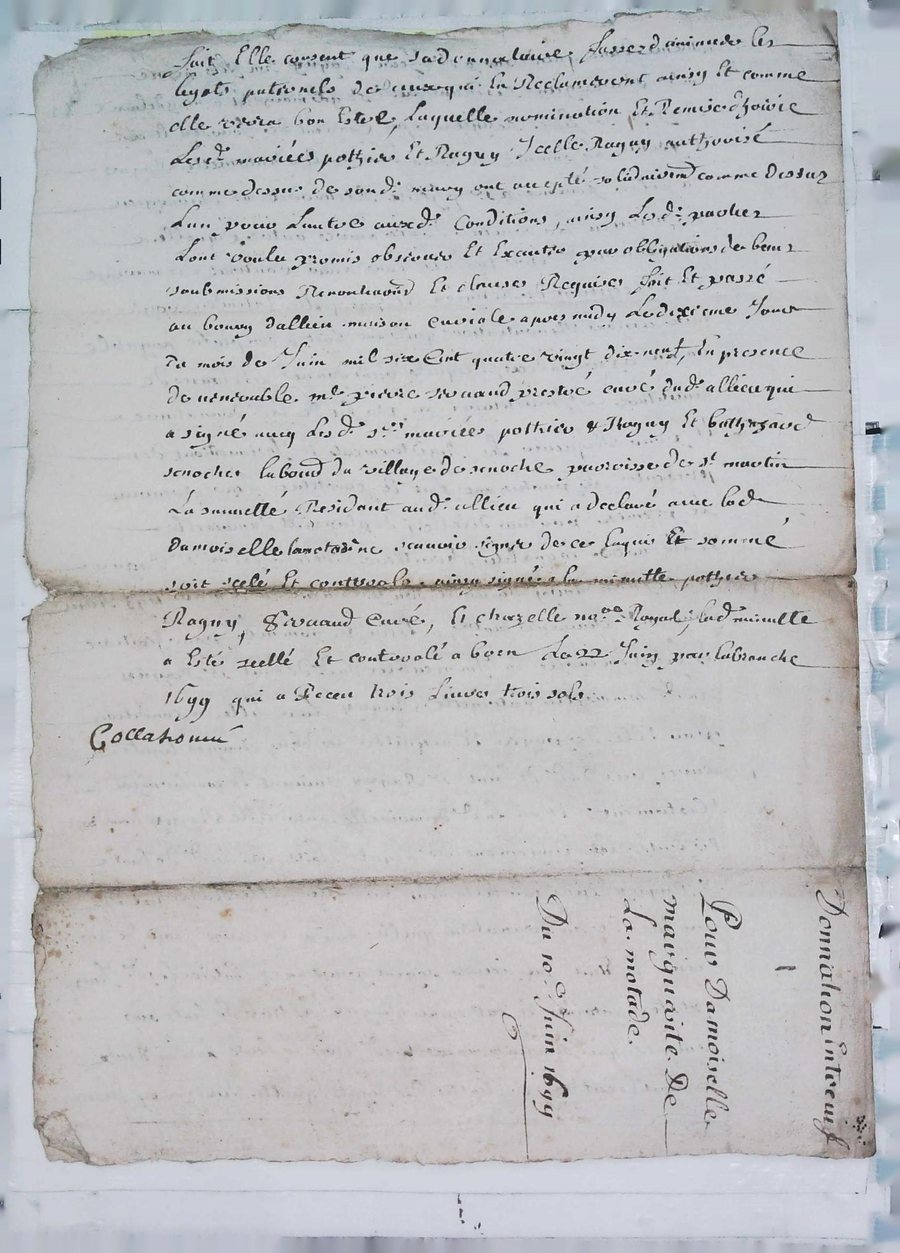 fait Elle consent que sad donnataire fasse demande les
legats paternels de ceux qui En Reclameront ainsy Et comme
elle verra bon Estre, Laquelle nomination Et Remise d'hoirie
Lesd. mariées pothier Et Raguy Icelle Raguy authorisé
comme dessus de sond. mary ont accepté solidairemt comme Dessus
Lun pour Lautre auxd. Conditions, ainsy Lesd. parties
Lont voulu promis observer Et Executer par obligations de biens
soubmissions Renontiaons Et clauses Requises fait Et passé
au bourg dallieu maison curialle apres midy Le dixieme Jour
du mois de Juin mil six Cent quatre vingt dix-neuf, En presence
de venerable mre pierre Sivaud prestre curé dud. allieu qui
a signé avecq Lesd. srs mariées pothier & Raguy Et
du village de senoche parroisse de st martin
La sauveté Resident aud. allieu qui a declaré avec lad
damoiselle scavoir signer de ce Enquis Et sommé
soit scelé Et controolé. ainsy signée a la minutte pothier
Raguy, Sivaud Curé, Et chazelle nore Royal, lad. minutte
a Esté scellé Et controolé a boen Le 22 Juin par labranche
1699 qui a Receu trois Livres trois sols
Collationné
Donnation Entre vifs
Pour Damoiselle
marguerite De
La motade.
Du 10e Juin 1699